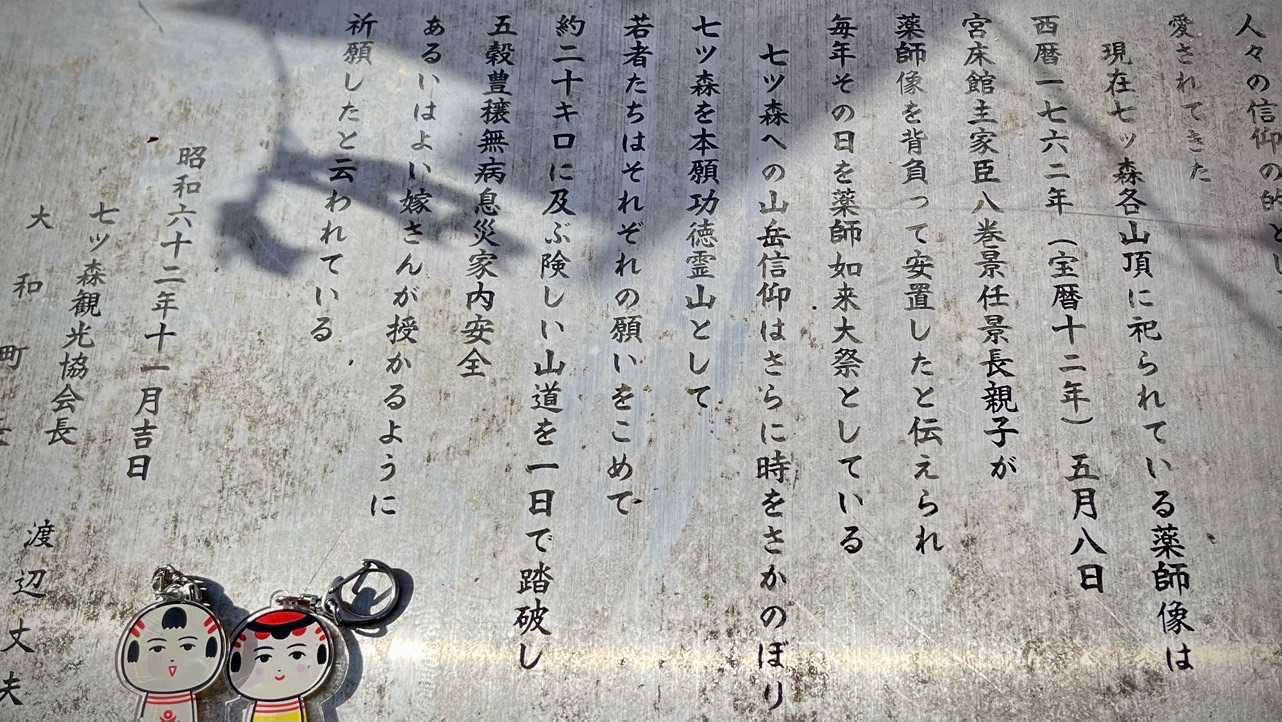 人々の信仰の的として
愛されてきた
現在七ッ森各山頂に祀られている薬師像は
西暦一七六二年（宝暦十二年）五月八日
宮床館主家臣八巻景任景長親子が
薬師像を背負って安置したと伝えられ
毎年その日を薬師如来大祭としている
七ツ森への山岳信仰はさらに時をさかのぼり
七ツ森を本願功徳霊山として
若者たちはそれぞれの願いをこめて
約二十キロに及ぶ険しい山道を一日で踏破し
五穀豊穣無病息災家内安全
あるいはよい嫁さんが授かるように
祈願したと云われている
昭和六十二年十一月吉日
七ツ森観光協会長
大和町長
渡辺丈夫